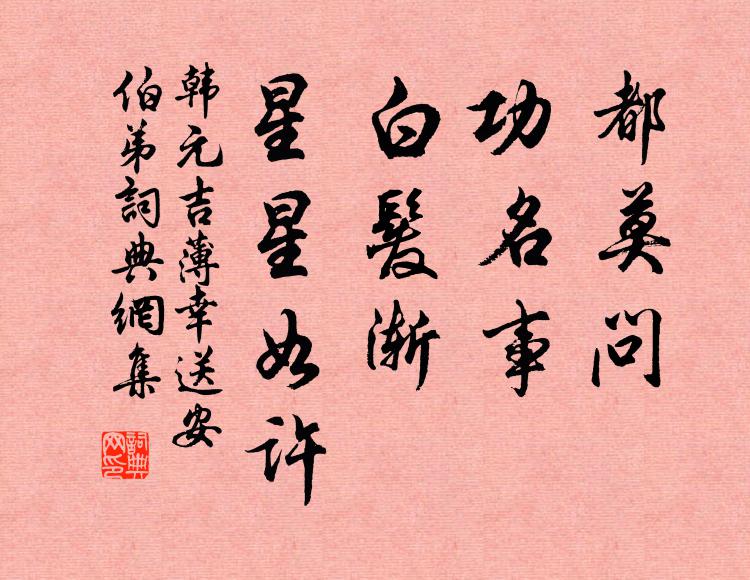 都莫问
功名事
白髮渐
星星如许
韩元吉薄幸送安
伯弟詞典網集
詞典网印